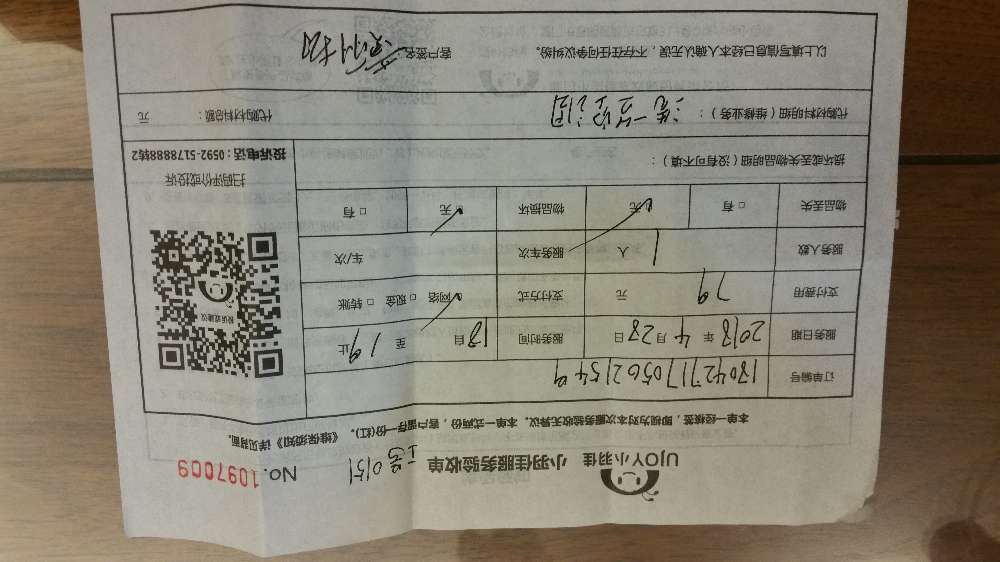 UJOY小羽佳 小羽佳服务验收单 工号0151 No. 1097009
本单一经核签，即视为对本次服务验收无异议。本单一式两份，客户留存一份(红)。《维保须知》详见背面。
订单编号 1804271705621549
服务日期 2018年4月28日 服务时间 18自 至19止
支付费用 79元 支付方式 ☑网络 □现金 □转账
服务人数 1人 服务车次 车/次
物品丢失 □有 ☑无 物品损坏 ☑无 □有
损坏或丢失物品明细（没有可不填）：
代购材料明细（维修业务）： 洗一台空调
代购材料总额： 元
以上填写信息已经本人确认无误，不存在任何争议纠纷。 客户签名
投诉或建议
扫码评价或投诉
投诉电话：0592-5178888转2